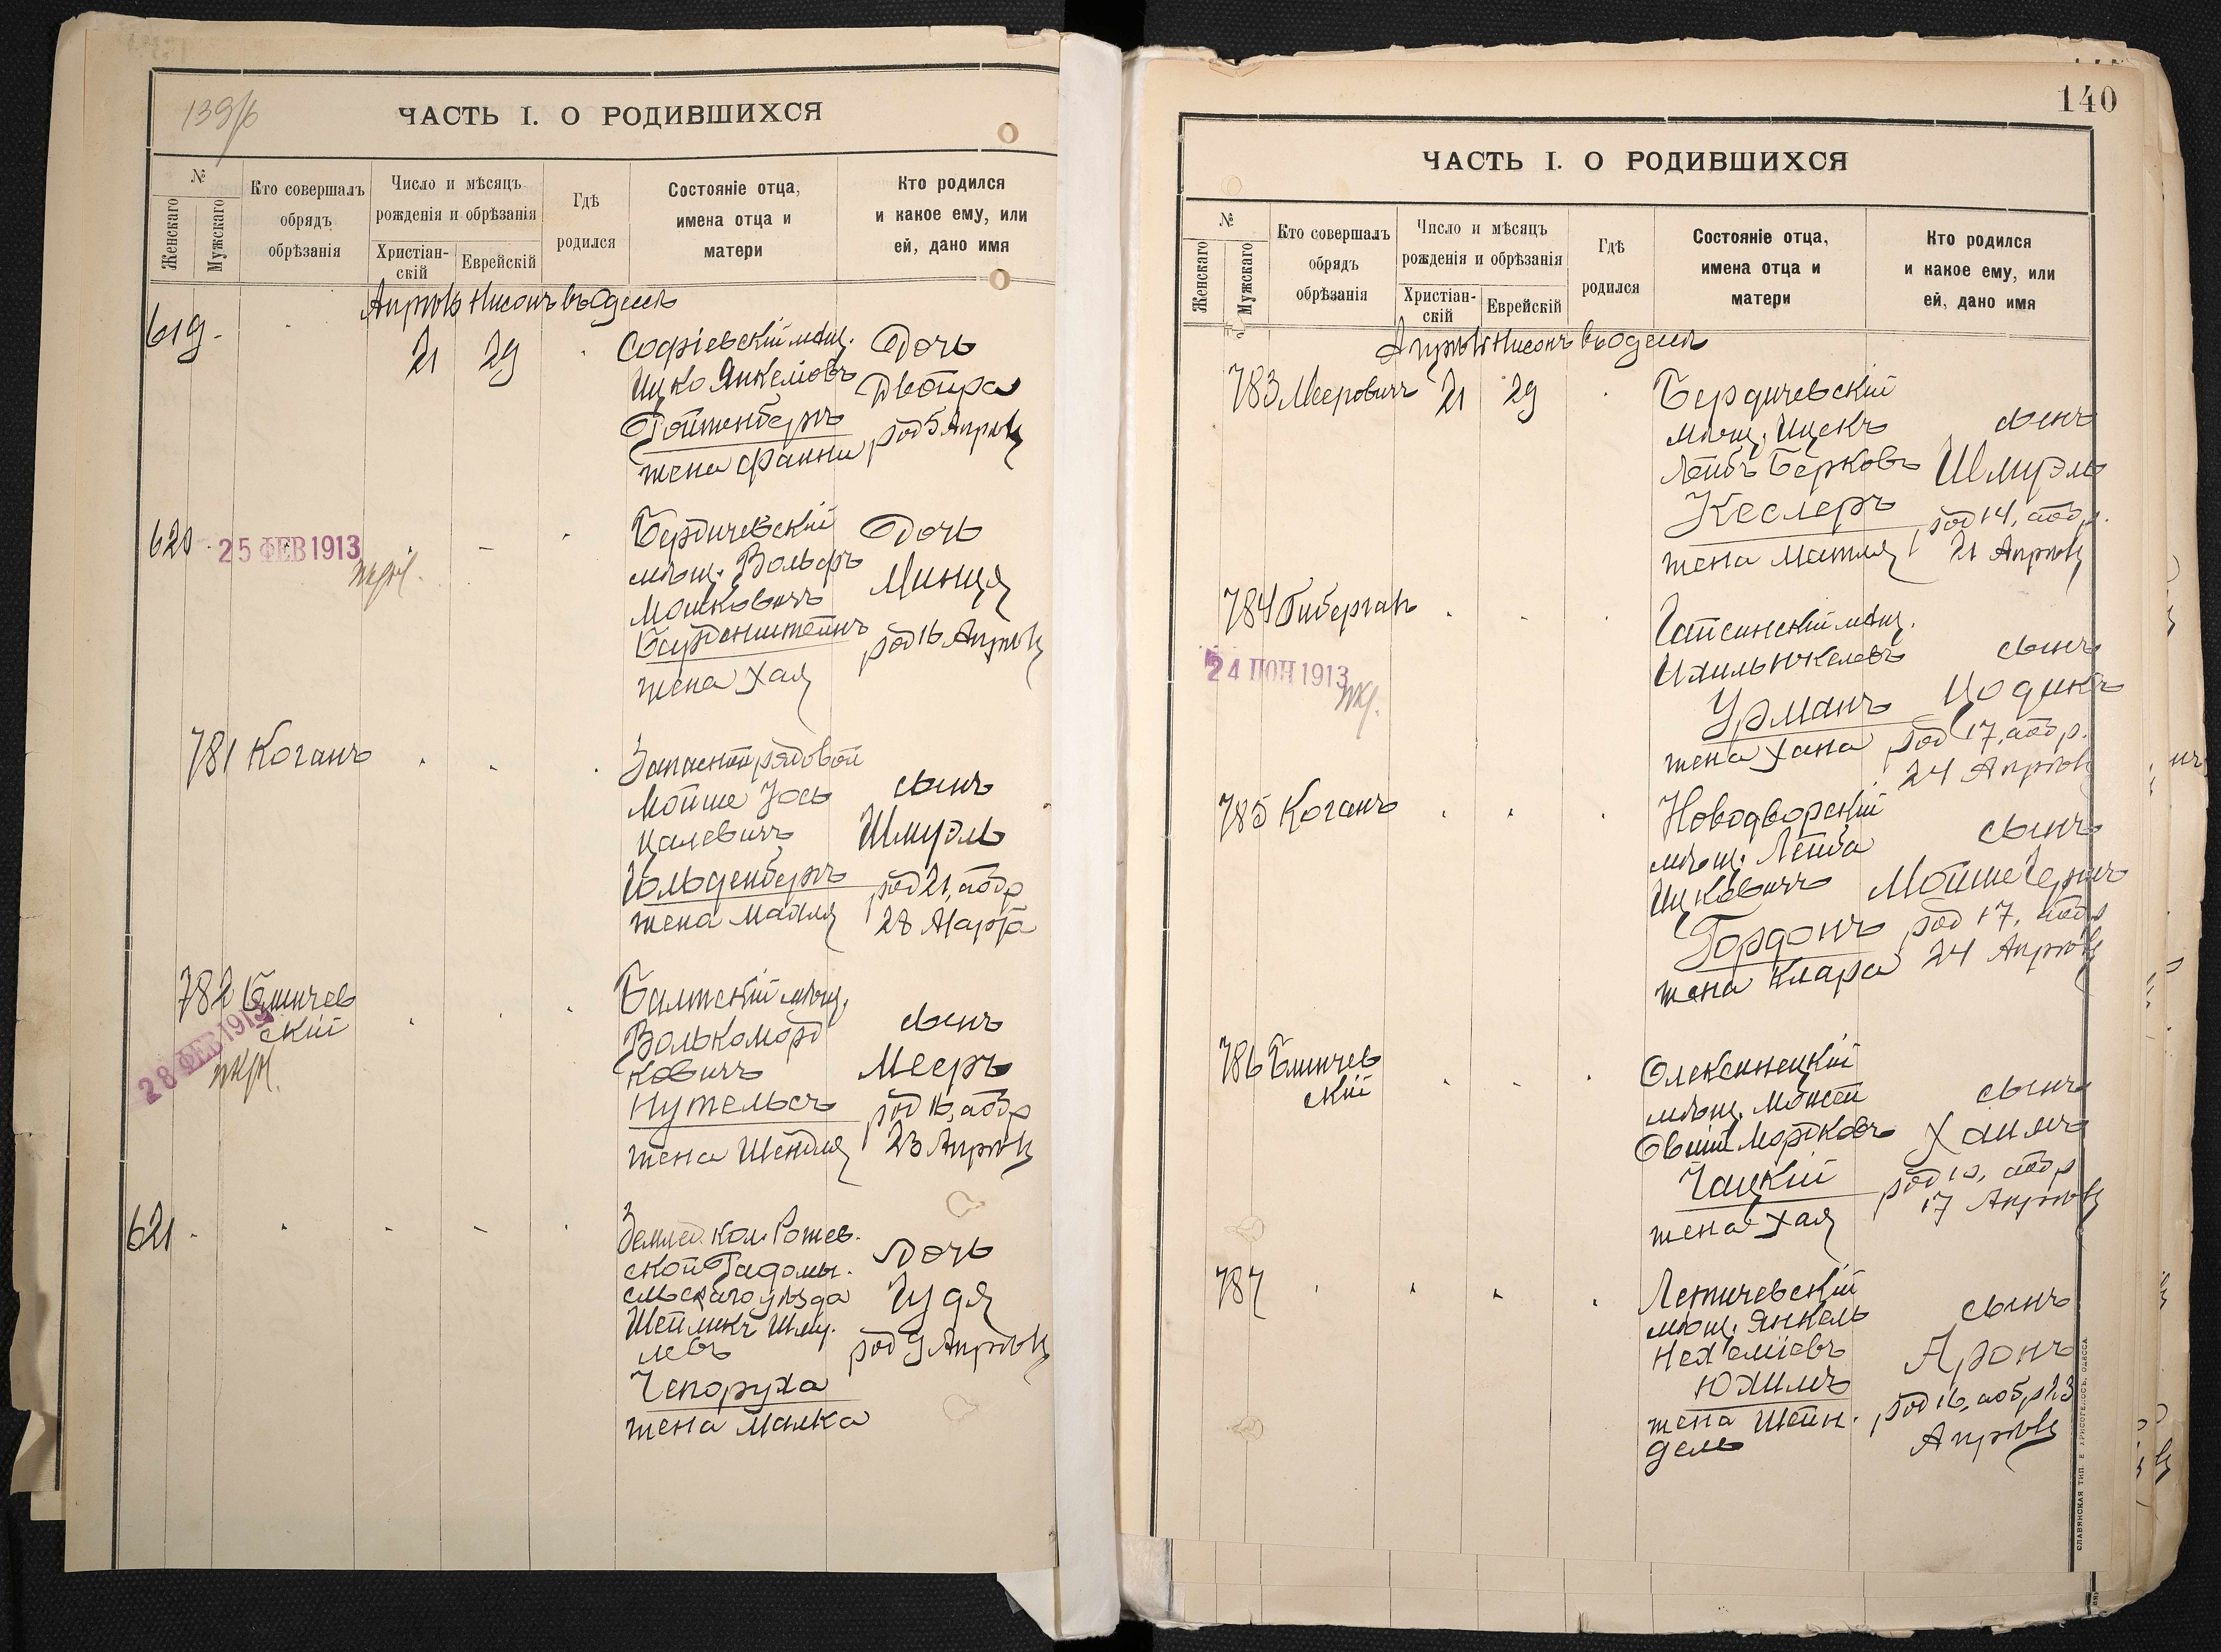 139/б
ЧАСТЬ I. О РОДИВШИХСЯ
№
Женскаго
Мужскаго
Кто совершалъ
обрядъ
обрѣзанія
Число и мѣсяцъ
рожденія и обрѣзанія
Христіан-
скій
Еврейскій
Гдѣ
родился
Состояніе отца,
имена отца и
матери
Кто родился
и какое ему, или
ей, дано имя
Апрѣль Нисонъ въ Одессѣ
619
21
29
Софіевскій мѣщ.
Ицко Янкелювъ
Ройтенбергъ
жена Фанни
Дочь
Двойра
род 5 Апрѣля
620
25 ФЕВ 1913
Бердичевскій
мѣщ. Вольфъ
Мошковичъ
жена Хая
Дочь
Минця
род 16 Апрѣля
781
Коганъ
Запасной рядовой
Мойше Іось
Цалевичъ
Гольденбергъ
жена Мадля
сынъ
Шмуэль
род 21, аобр
28 Марта
782
Бличев
скій
28 ФЕВ 1913
Балтскій мѣщ.
Волько Морд
ковичъ
Нутельсъ
жена Шейдля
сынъ
Мееръ
род 16, аобр
23 Апрѣля
621
Землед. кол. Ротев.
ской Радомы.
сльскаго уѣзда
Шейликъ Шму.
левъ
Чепоруха
жена Малка
Дочь
Гудя
род 9 Апрѣля
140
ЧАСТЬ I. О РОДИВШИХСЯ
№
Женскаго
Мужскаго
Кто совершалъ
обрядъ
обрѣзанія
Число и мѣсяцъ
рожденія и обрѣзанія
Христіан-
скій
Еврейскій
Гдѣ
родился
Состояніе отца,
имена отца и
матери
Кто родился
и какое ему, или
ей, дано имя
Апрѣль Нисонъ въ Одессѣ
783
Мееровичъ
21
29
Бердичевскій
мѣщ. Ицекъ
Лейбъ Берковъ
Кеслеръ
жена Матля
сынъ
Шмуэль
род 14, аобр.
21 Апрѣля
784
Гиберганъ
24 ІЮН 1913
Гайсинскій мѣщ.
Ихиль Юкелевъ
Урманъ
жена Хана
сынъ
Іодикъ
род 17, аобр.
24 Апрѣля
785
Коганъ
Новодворскій
мѣщ. Лейба
Ицковичъ
Гордонъ
жена Клара
сынъ
Мойше Герш
род 17, аобр
24 Апрѣля
786
Бличев
скій
Олексинецкій
мѣщ. Мойсей
Овшій Мордковъ
Чацкій
жена Хая
сынъ
Хаимъ
род 10, аобр
17 Апрѣля
787
Летичевскій
мѣщ. Янкель
Нехеміевъ
Юхимъ
жена Шейн.
дель
сынъ
Аронъ
род 16, аобр 23
Апрѣля
СЛАВЯНСКАЯ ТИП. Е. ХРИСОГЕЛОСЪ, ОДЕССА